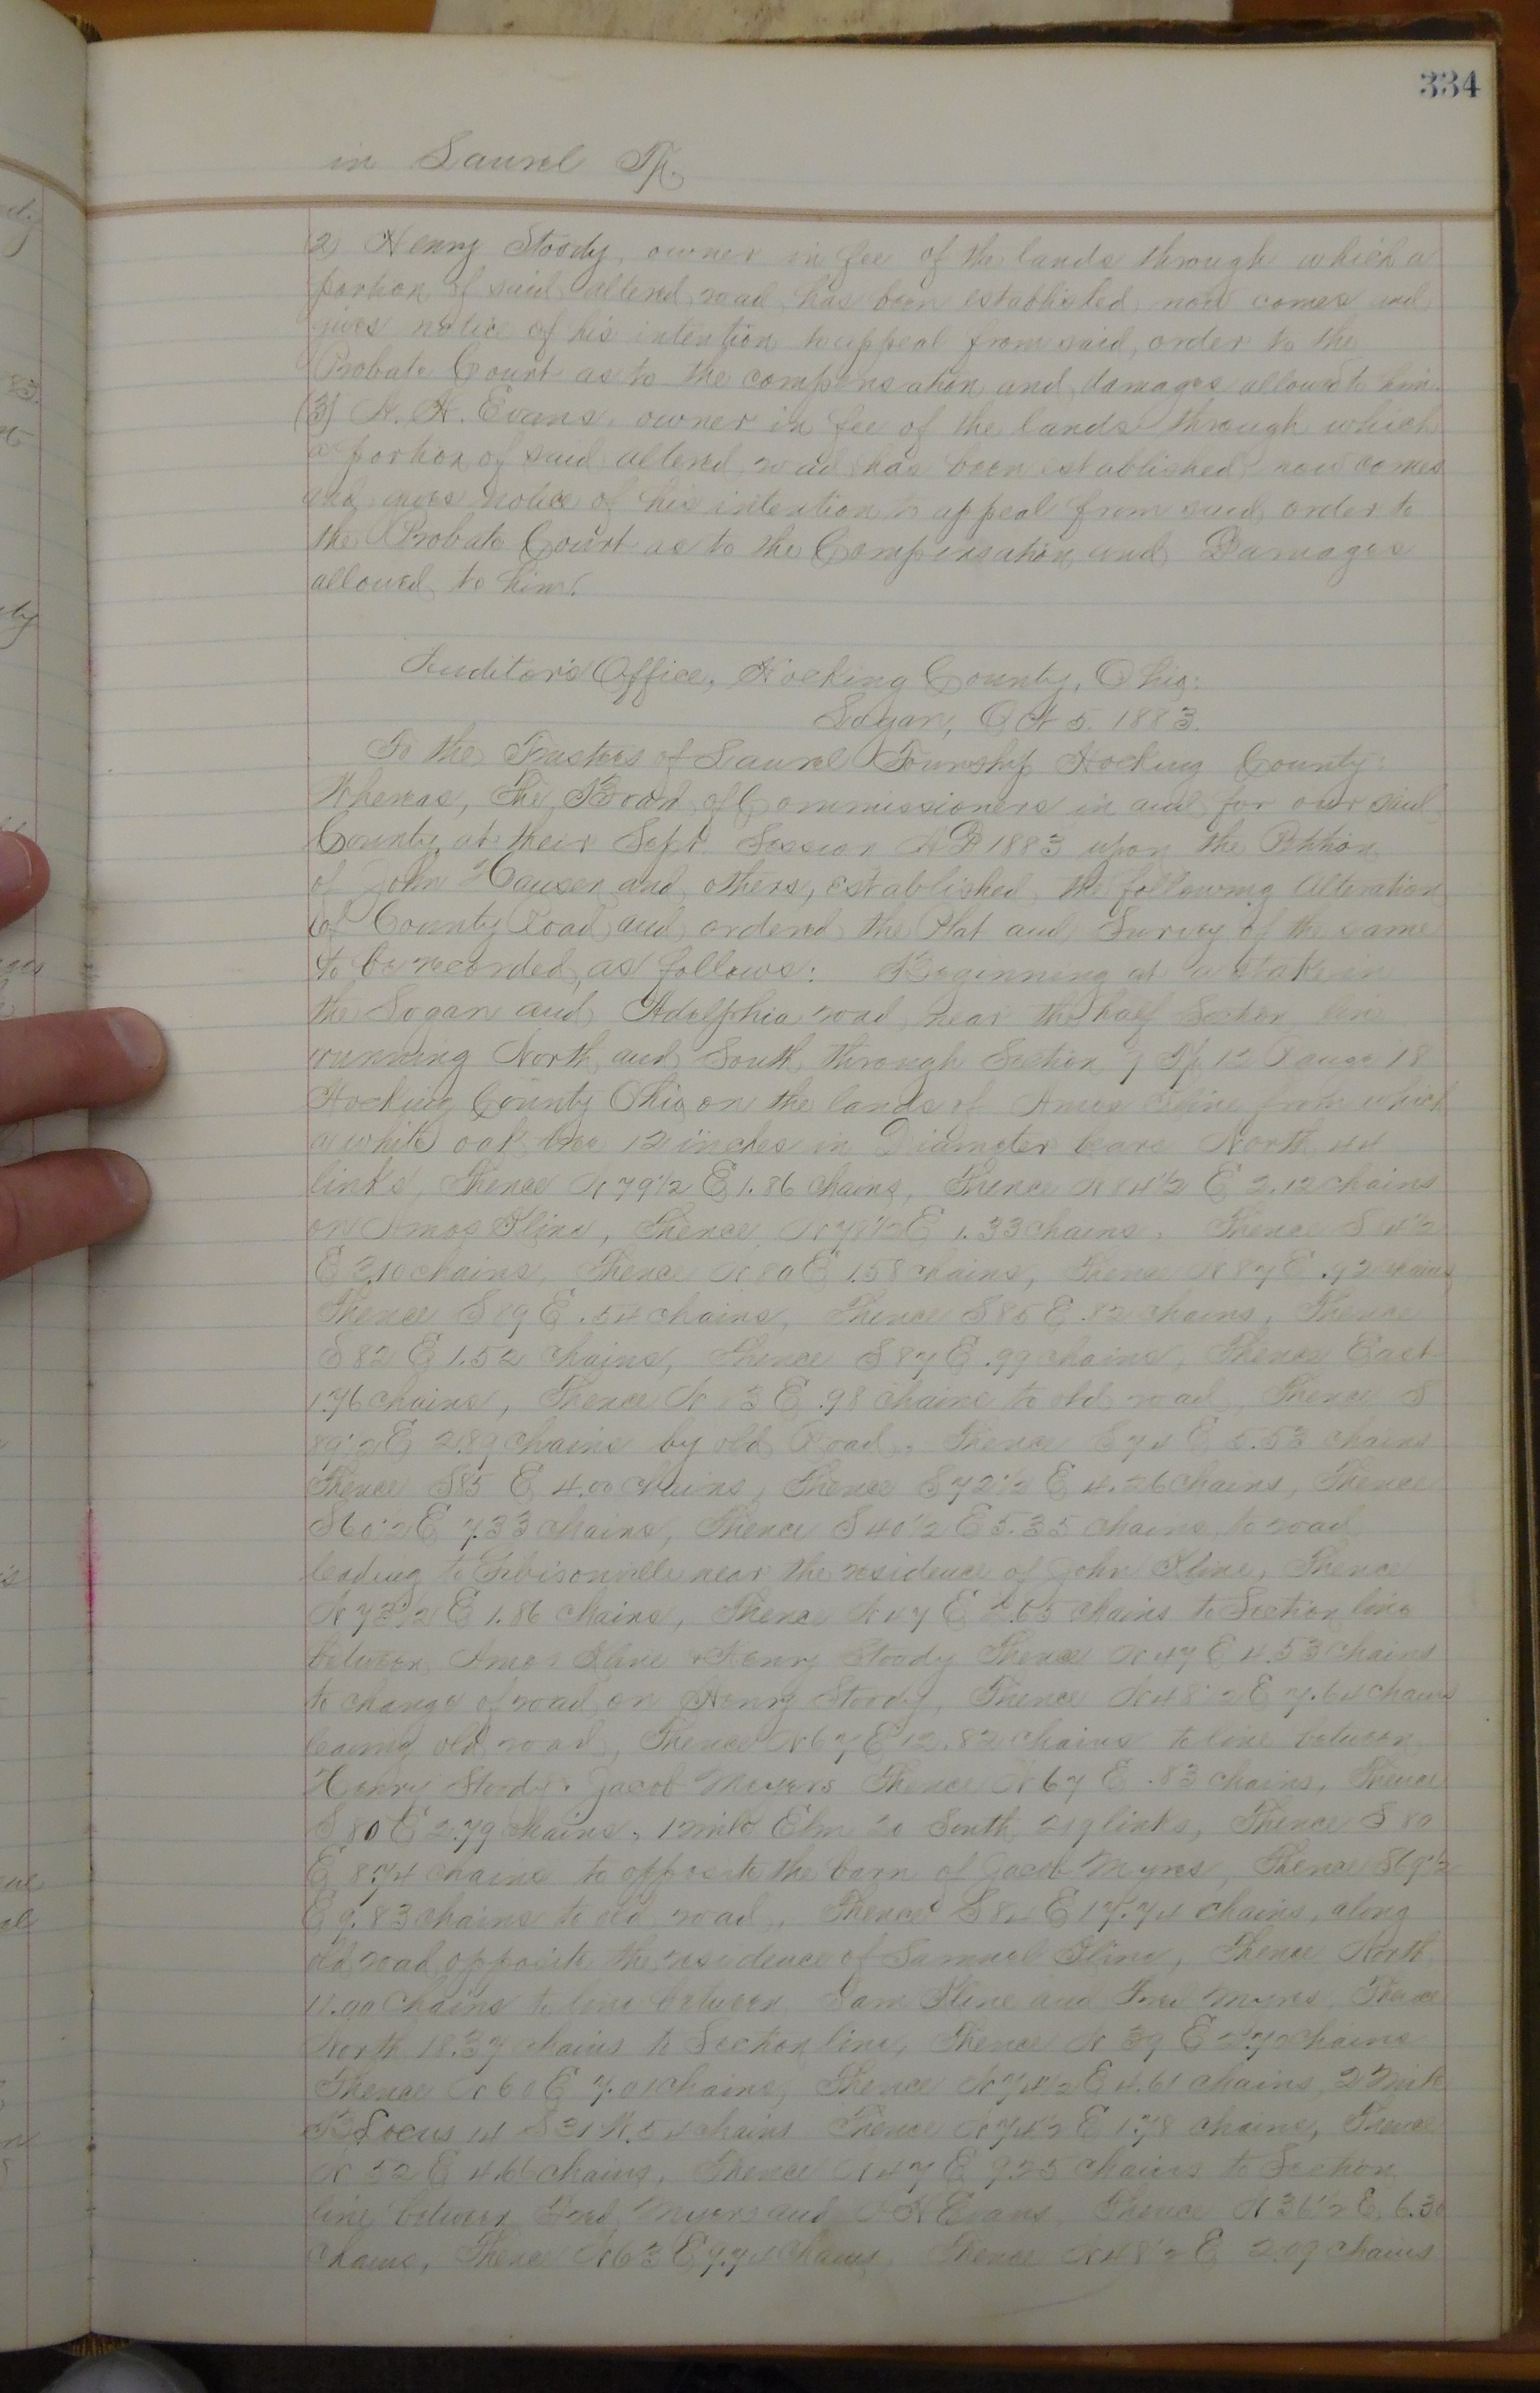 334
in Laurel Tp.
(2) Henry Stoody, owner in fee of the lands through which a
portion of said altered road has been established, now comes and
gives notice of his intention to appeal from said order to the
Probate Court as to the compensation and damages allowed to him.
(3) H. Evans, owner in fee of the lands through which
a portion of said altered road has been established now comes
and gives notice of his intention to appeal from said order to
the Probate Court as to the Compensation and Damages
allowed to him.
Auditor's Office, Hocking County, Ohio:
Logan, Oct 5. 1883.
To the Trustees of Laurel Township Hocking County:
Whereas, The Board of Commissioners in and for our said
County at their Sept. Session AD 1883 upon the Petition
of John Hauser and others, established the following Alteration
of County Road and ordered the Plat and Survey of the same
to be recorded, as follows: Beginning at a stake in
the Logan and Adelphia road near the half Section line
running North and South through Section 7 Tp 12 Range 18
Hocking County Ohio on the lands of Amos Kline from which
a white oak tree 12 inches in Diameter bears North 44
links, Thence N 79 1/2 E 1.86 chains, Thence N 84 1/2 E 2.12 chains
on Amos Kline, Thence N 78 1/2 E 1.33 chains, Thence S
E 3.10 chains, Thence N 80 E 1.58 chains, Thence N 87 E .92 chains
Thence S 89 E .54 chains, Thence S 85 E .82 chains, Thence
S 82 E 1.52 chains, Thence S 87 E .99 chains, Thence East
1.76 chains, Thence N 3 E .98 chains to old road, Thence S
89 1/2 E 2.89 chains by old Road, Thence S 74 E 5.53 chains
Thence S 85 E 4.00 chains, Thence S 72 1/2 E 4.26 chains, Thence
S 60 1/2 E 7.33 chains, Thence S 40 1/2 E 5.35 chains to road
leading to Gibisonville near the residence of John Kline, Thence
N 73 1/2 E 1.86 chains, Thence N 7 E 2.65 chains to Section line
between Amos Kline & Henry Stoody Thence N 47 E 4.53 chains
to change of road on Henry Stoody, Thence N 48 1/2 E 7.64 chains
leaving old road, Thence N 67 E 12.82 chains to line between
Henry Stoody & Jacob Meyers Thence N 67 E .83 chains, Thence
S 80 E 2.79 chains, 1 mile Elm 20 South 219 links, Thence S 80
E 8.74 chains to opposite the barn of Jacob Myres, Thence S 69 1/2
E 9.83 chains to old road, Thence S 84 E 17.74 chains, along
old road opposite the residence of Samuel Kline, Thence North
11.90 chains to line between Sam Kline and Fred Myres, Thence
North 18.37 chains to Section line, Thence N 39 E chains
Thence N 60 E 7.01 chains, Thence N 74 1/2 E 4.61 chains, 2 Mile
B Locus 14 S 31 W. chains Thence N 74 1/2 E 1.78 chains, Thence
N 52 E 4.61 chains, Thence N 47 E 9.25 chains to Section
line between Fred Myers and H Evans, Thence N 36 1/2 E 6.30
chains, Thence N 63 E 9.74 chains, Thence N 48 1/2 E 2.09 chains